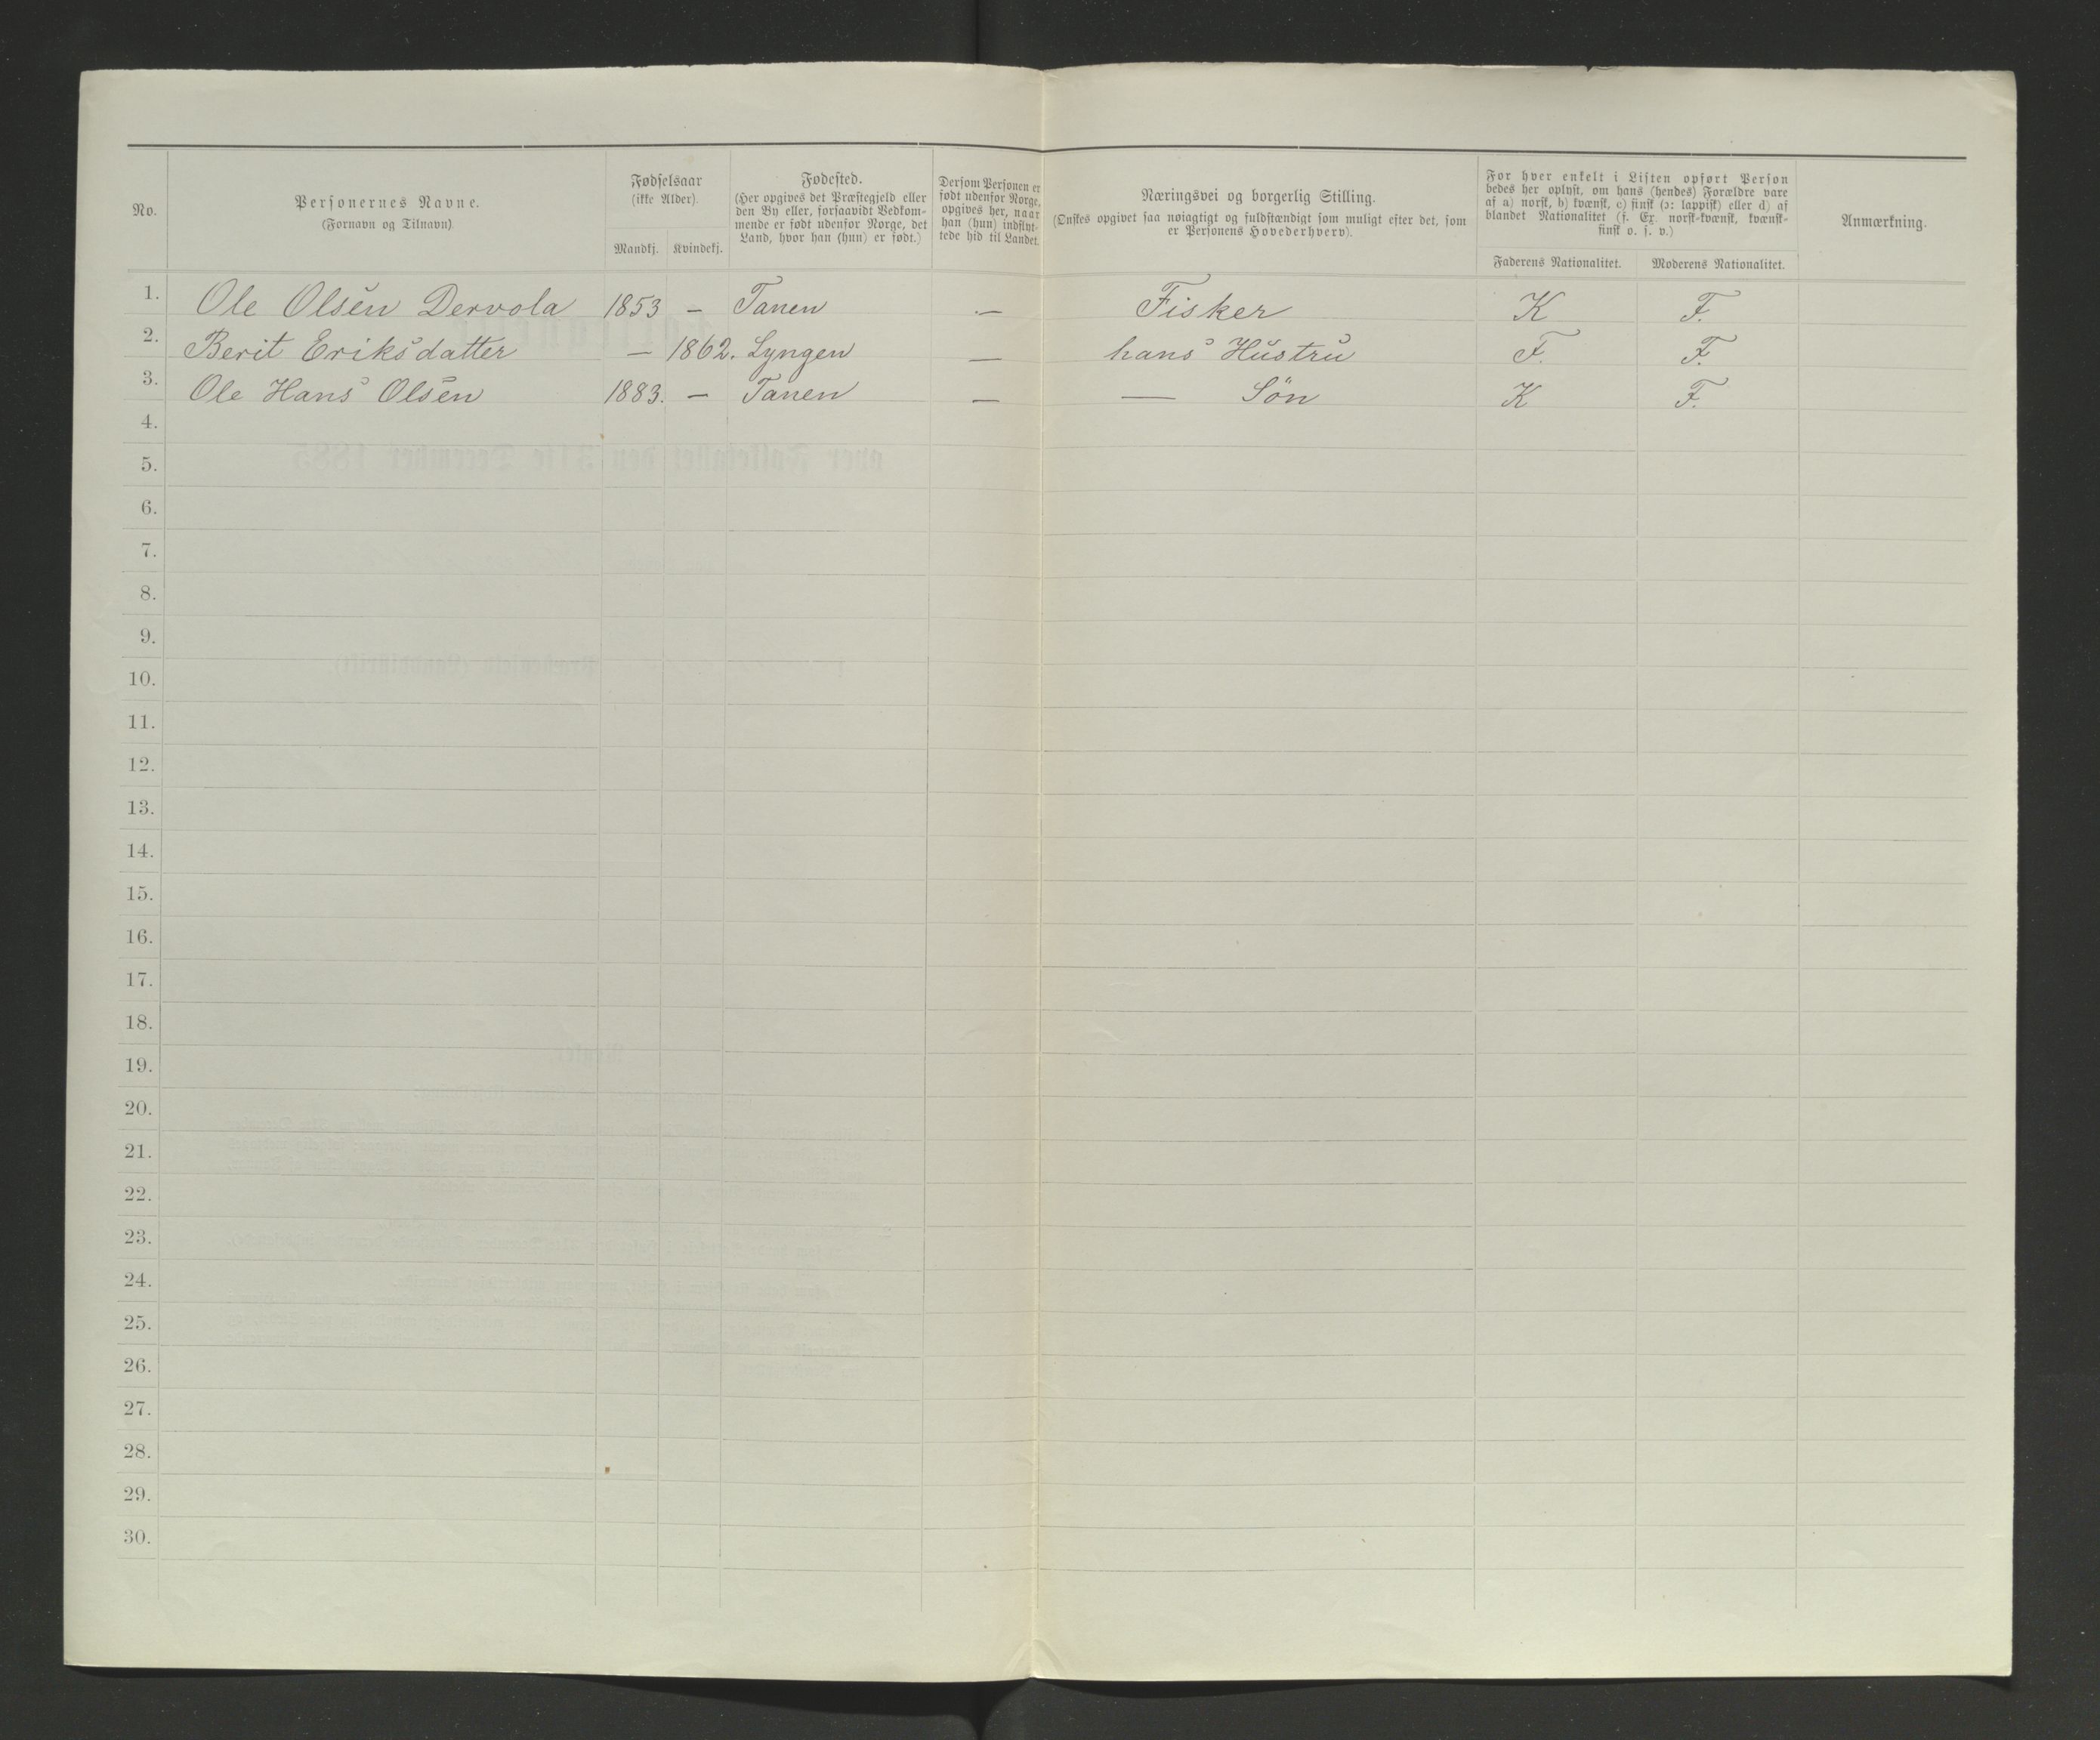 No.
Personernes Navne.
(Fornavn og Tilnavn)
Fødselsaar
(ikke Alder).
Mandkj. Kvindekj.
Fødested.
(Her opgives det Præstegjeld eller
den By eller, forsaavidt Vedkom-
mende er født udenfor Norge, det
Land, hvor han (hun) er født.)
Dersom Personen er
født udenfor Norge,
opgives her, naar
han (hun) indflyt-
tede hid til Landet.
Næringsvei og borgerlig Stilling.
(Ønskes opgivet saa nøiagtigt og fuldstændigt som muligt efter det, som
er Personens Hovederhverv).
For hver enkelt i Listen opført Person
bedes her oplyst, om hans (hendes) Forældre vare
af a) norsk, b) kvænsk, c) finsk (ɔ: lappisk) eller d) af
blandet Nationalitet (f. Ex. norsk-kvænsk, kvænsk-
finsk o. s. v.)
Faderens Nationalitet. Moderens Nationalitet.
Anmærkning.
1. Ole Olsen Dervola 1853 — Tanen — Fisker K F.
2. Berit Eriksdatter — 1862. Lyngen — hans Hustru F. F.
3. Ole Hans Olsen 1883. — Tanen — — Søn K F.
4.
5.
6.
7.
8.
9.
10.
11.
12.
13.
14.
15.
16.
17.
18.
19.
20.
21.
22.
23.
24.
25.
26.
27.
28.
29.
30.